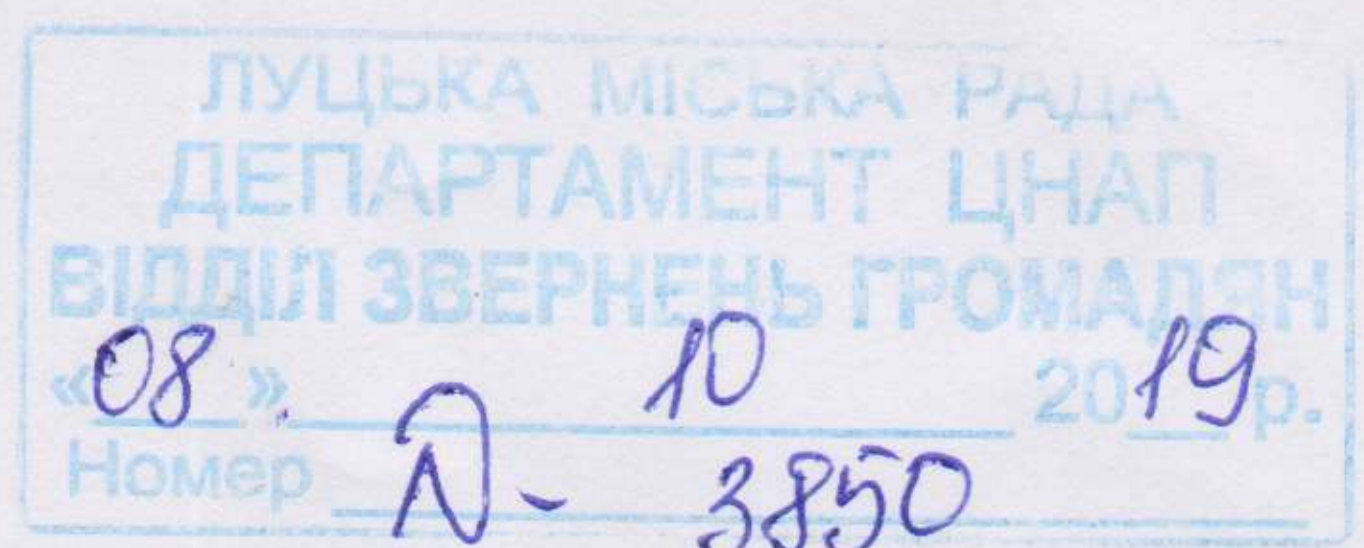 ЛУЦЬКА МІСЬКА РАДА
ДЕПАРТАМЕНТ ЦНАП
ВІДДІЛ ЗВЕРНЕНЬ ГРОМАДЯН
«08.» 10 2019 р.
Номер Д- 3850